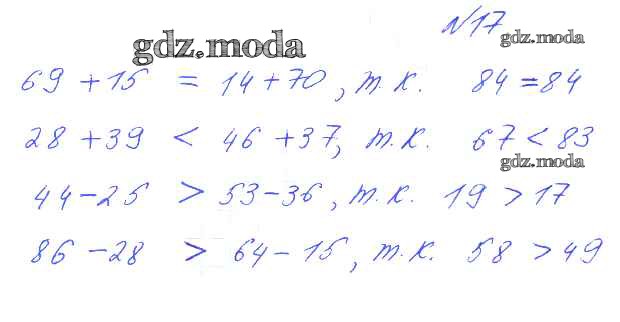 №17
gdz.moda
gdz.moda
69 + 15 = 14 + 70, т.к. 84 = 84
28 + 39 < 46 + 37, т.к. 67 < 83
gdz.moda
44 - 25 > 53 - 36, т.к. 19 > 17
86 - 28 > 64 - 15, т.к. 58 > 49